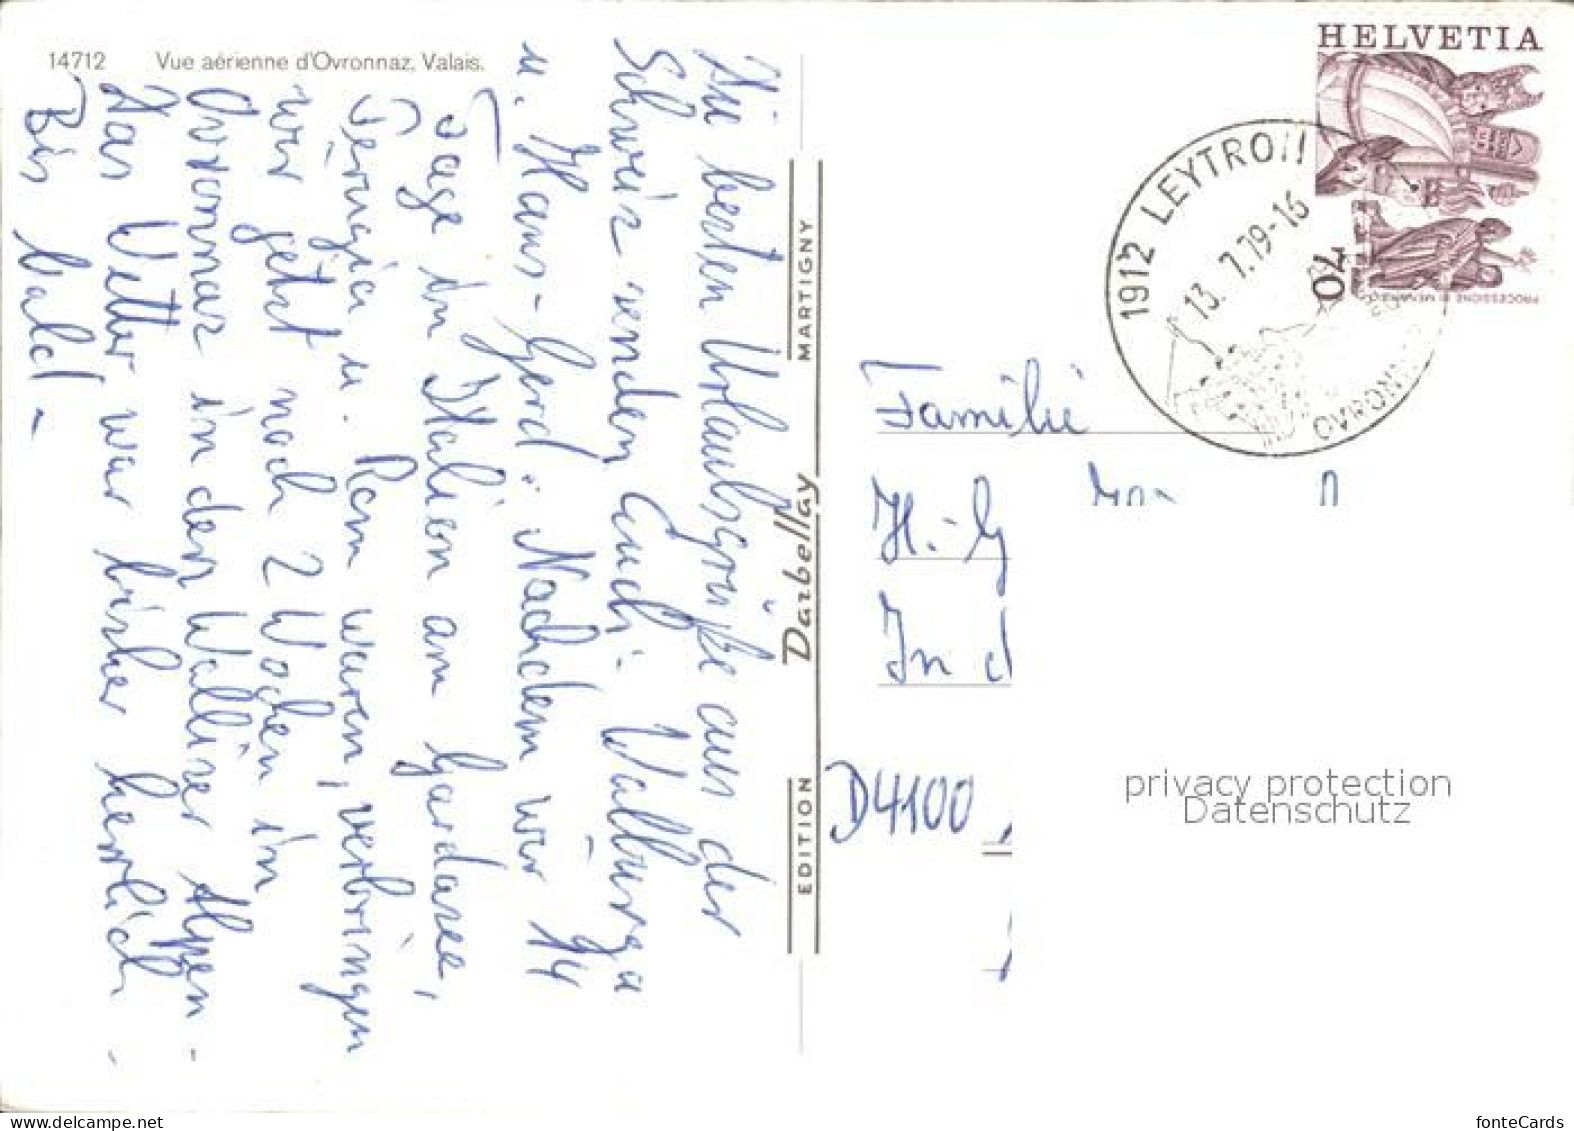 14712 Vue aérienne d'Ovronnaz, Valais.
Die besten Urlaubsgrüße aus der
Schweiz senden Euch. Walburga
u. Hans-Gerd. Nachdem wir 14
Tage in Italien am Gardasee,
Perugia u. Rom waren, verbringen
wir jetzt noch 2 Wochen in
Ovronnaz in den Walliser Alpen.
Das Wetter war bisher herrlich.
Bis bald -
EDITION Darbellay MARTIGNY
HELVETIA
70
PROCESSIONE DI MENDRISIO
1912 LEYTRON
13. 7.79-16
OVRONNAZ
Familie
H.-G
In d
D4100
privacy protection
Datenschutz
fonteCards